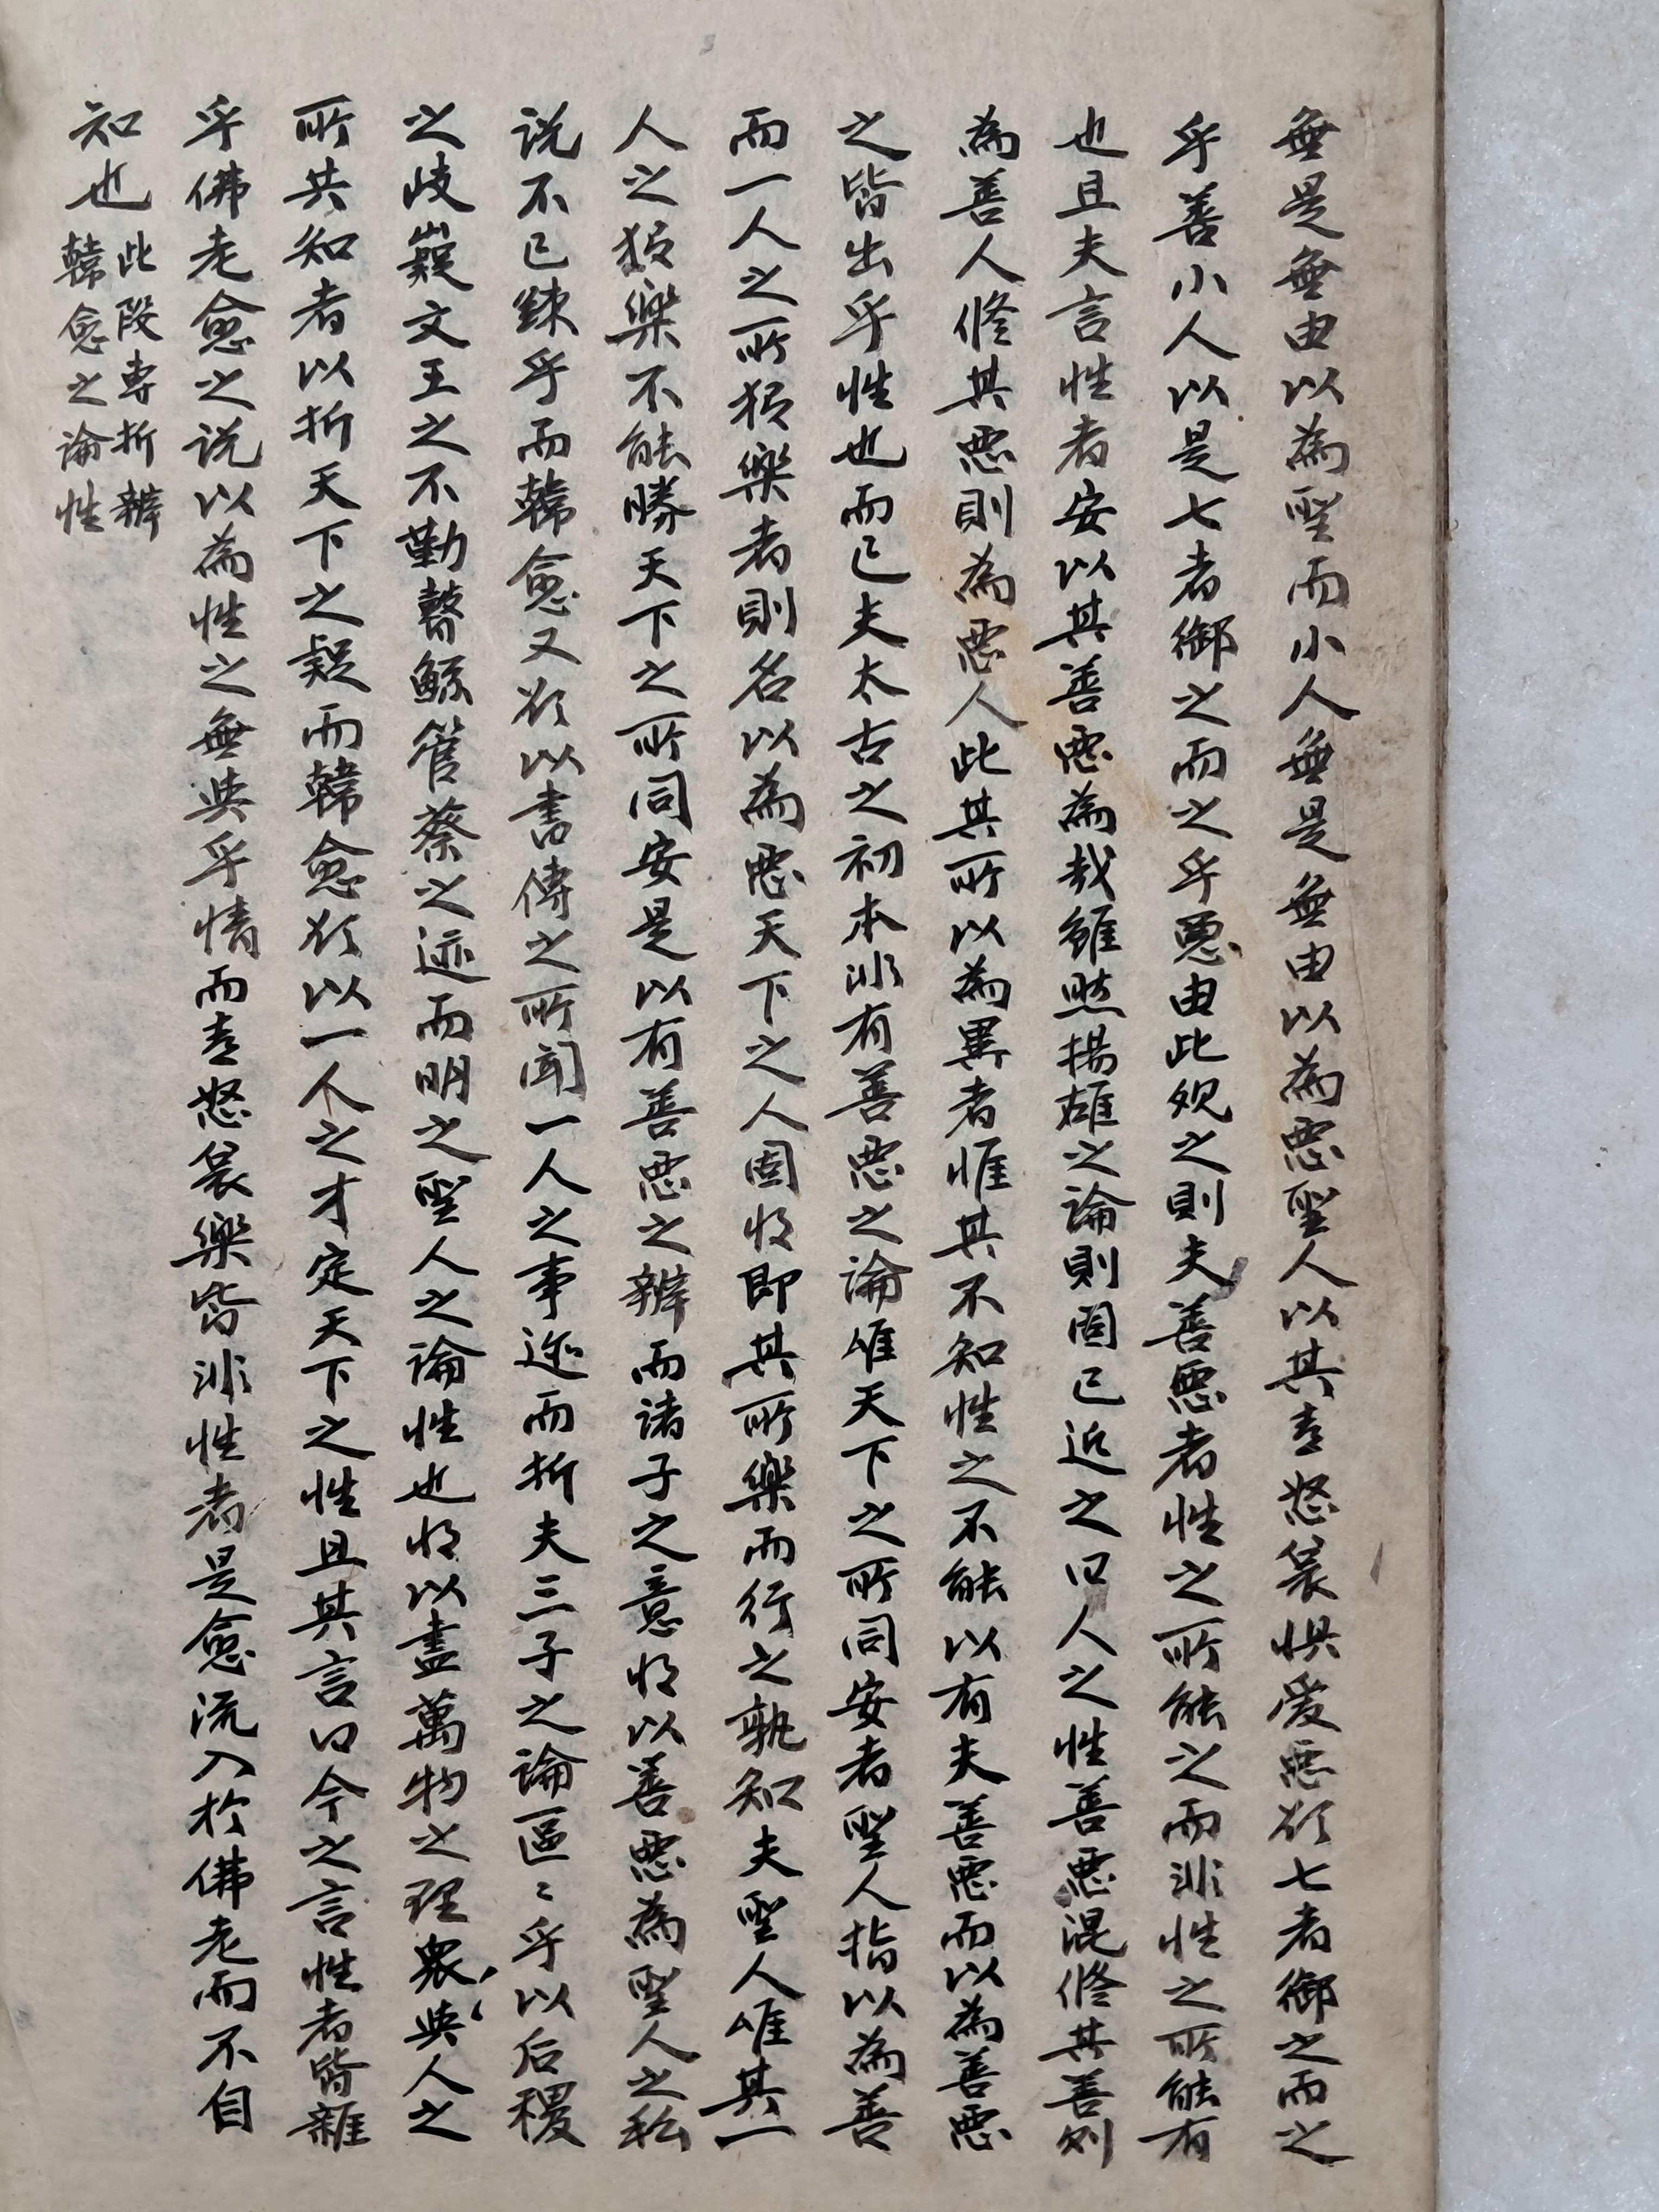 無是無由以為聖而小人無是無由以為惡聖人以其喜怒哀懼愛惡欲七者御之而之
乎善小人以是七者御之而之乎惡由此观之則夫善惡者性之所能之而非性之所能有
也且夫言性者安以其善惡為哉雖然揚雄之論則固已近之曰人之性善惡混修其善則
為善人修其惡則為惡人此其所以為異者惟其不知性之不能以有夫善惡而以為善惡
之皆出乎性也而已夫太古之初本非有善惡之論唯天下之所同安者聖人指以為善
而一人之所独樂者則名以為惡天下之人固将即其所樂而行之孰知夫聖人唯其一
人之独樂不能勝天下之所同安是以有善惡之辨而諸子之意将以善惡為聖人之私
说不已疎乎而韓愈又欲以書傳之所聞一人之事迹而折夫三子之論區〻乎以后稷
之岐嶷文王之不勤瞽鯀管蔡之迹而明之聖人之論性也将以盡萬物之理衆與人之
所共知者以折天下之疑而韓愈欲以一人之才定天下之性且其言曰今之言性者皆雜
乎佛老愈之说以為性之無與乎情而喜怒哀樂皆非性者是愈流入於佛老而不自
知也 此段專折辨
韓愈之論性